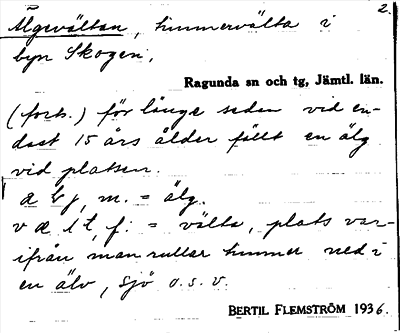 2.
Älgvältan, timmervälta i
byn Skogen,
Ragunda sn och tg, Jämtl. län.
(forts.) för länge sedan vid en-
dast 15 års ålder fällt en älg
vid platsen.
æ lg j, m. = älg.
v æ l t, f. = välta, plats var-
ifrån man rullar timmer ned i
en älv, sjö o.s.v.
BERTIL FLEMSTRÖM 1936.